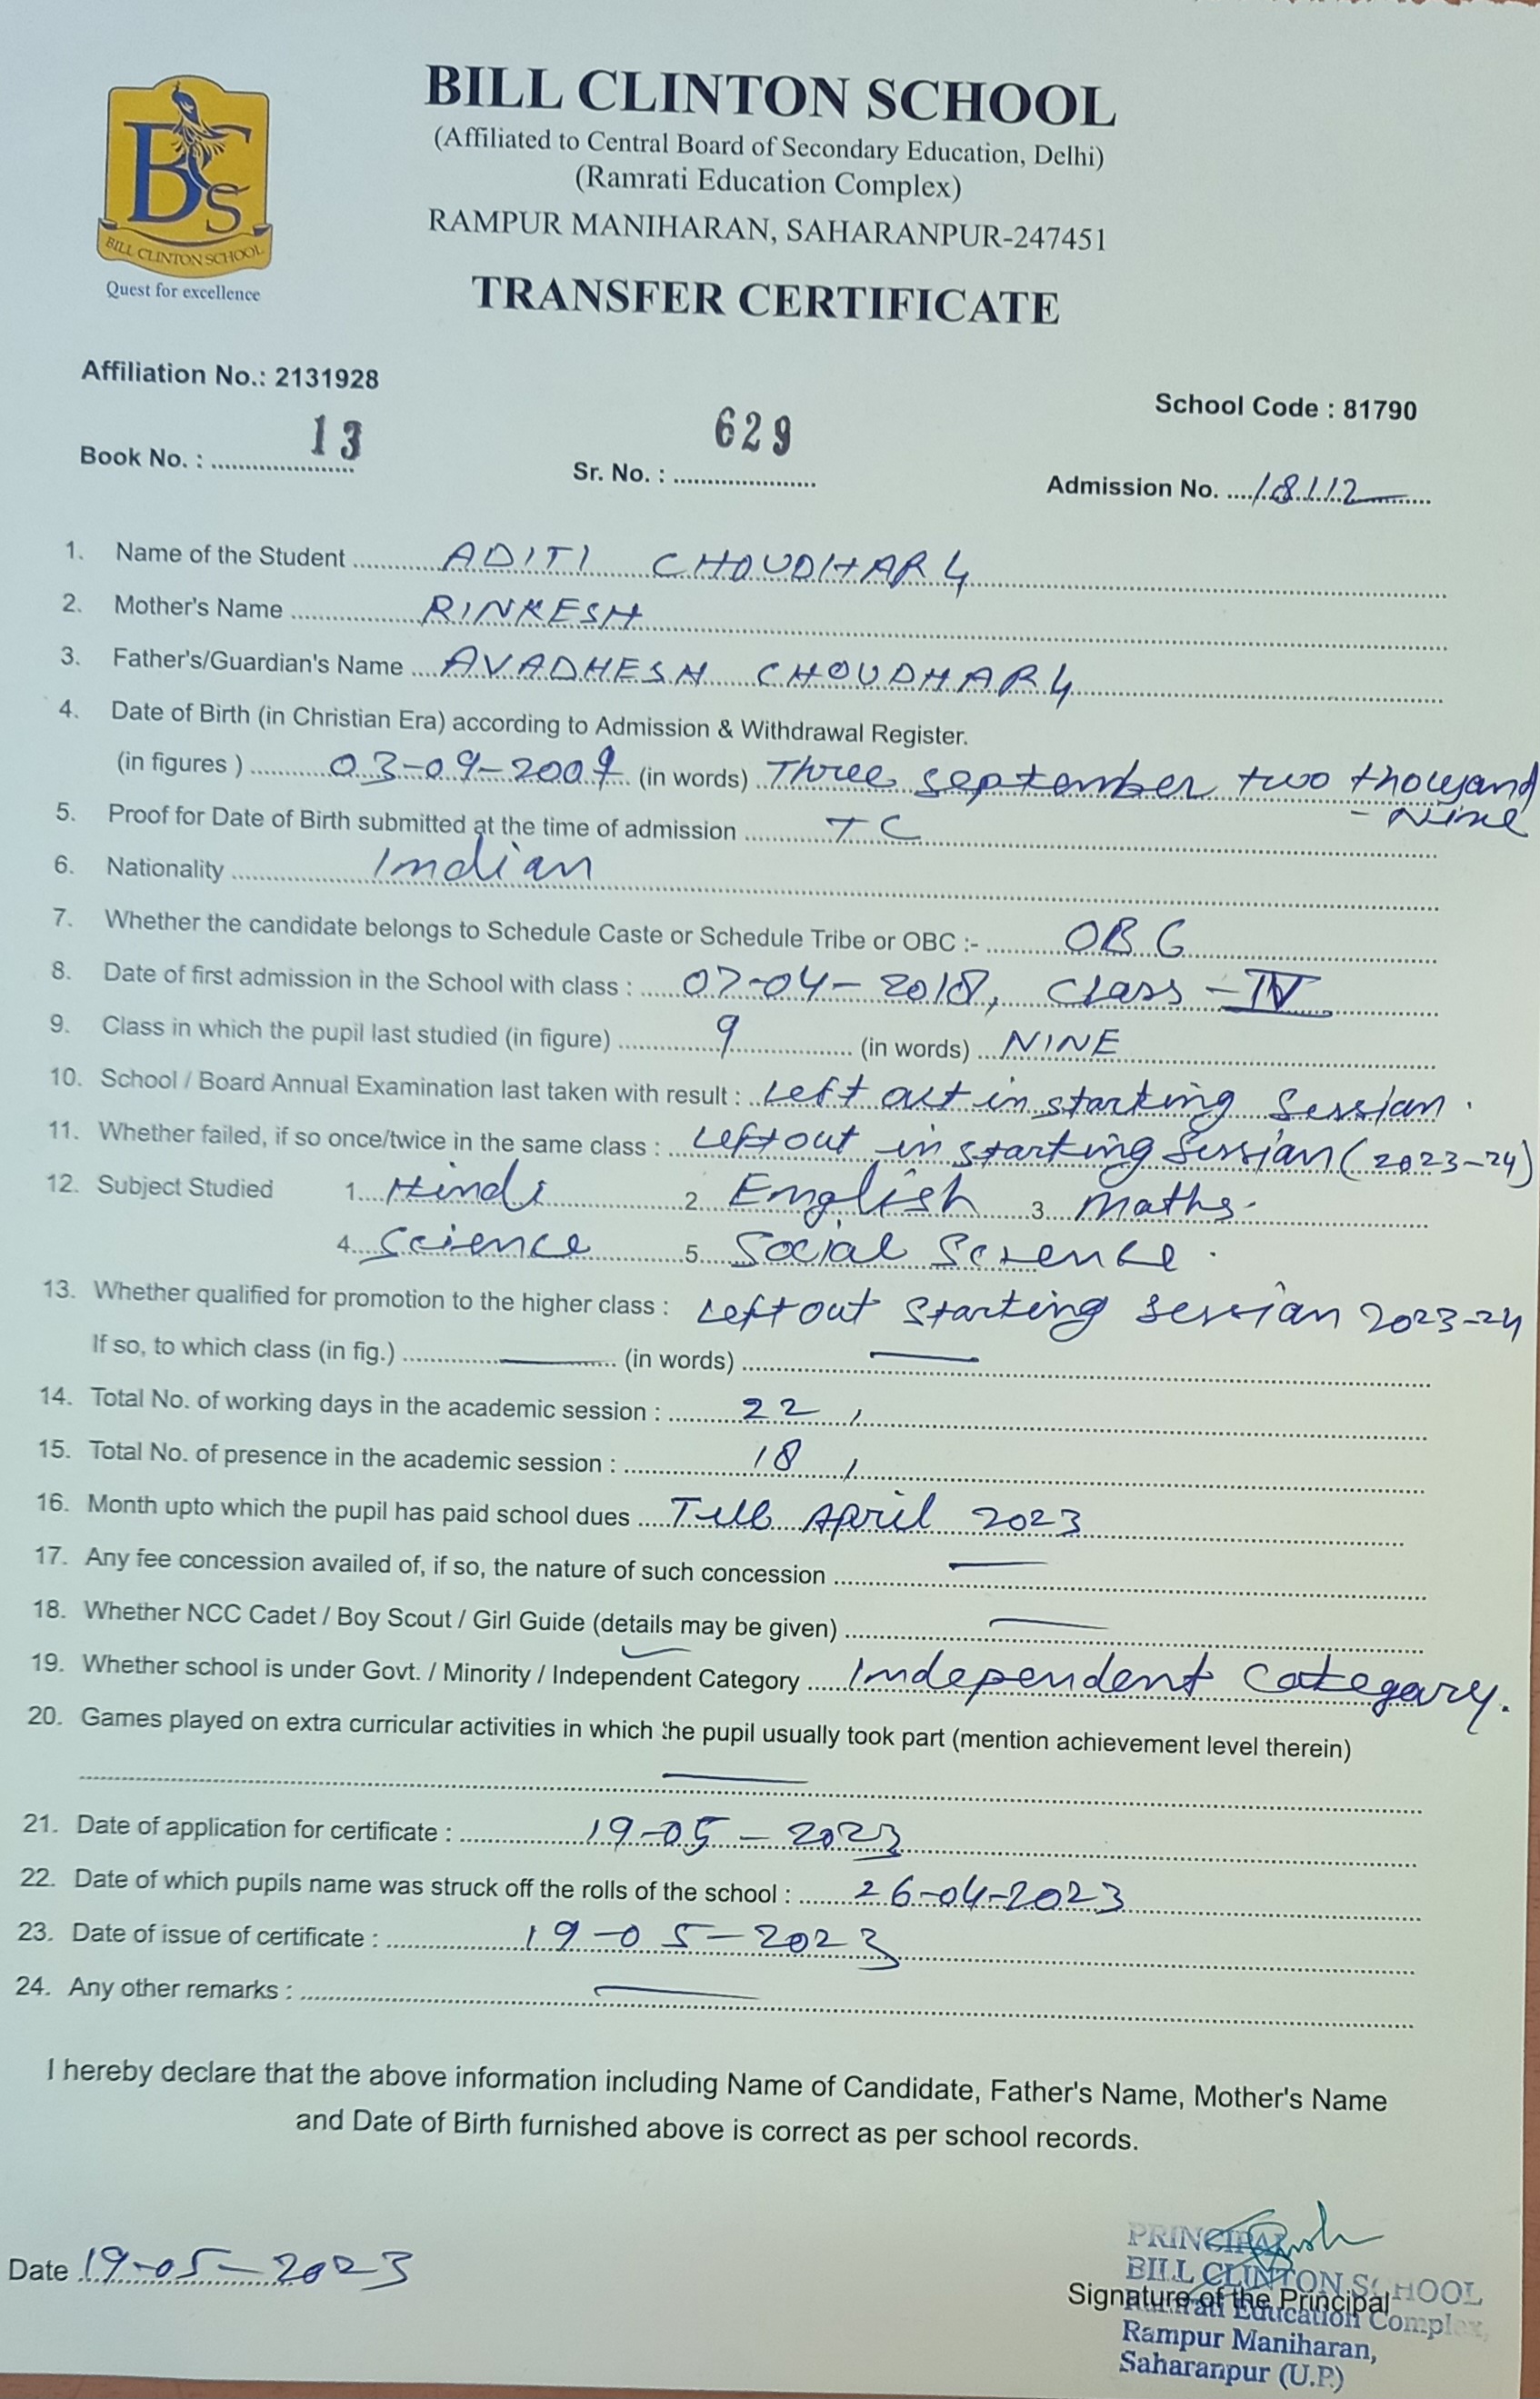 BCS
BILL CLINTON SCHOOL
Quest for excellence
BILL CLINTON SCHOOL
(Affiliated to Central Board of Secondary Education, Delhi)
(Ramrati Education Complex)
RAMPUR MANIHARAN, SAHARANPUR-247451
TRANSFER CERTIFICATE
Affiliation No.: 2131928
School Code : 81790
Book No. : 13 Sr. No. : 629 Admission No. 18112
1. Name of the Student ADITI CHOUDHARY
2. Mother's Name RINKESH
3. Father's/Guardian's Name AVADHESH CHOUDHARY
4. Date of Birth (in Christian Era) according to Admission & Withdrawal Register.
(in figures ) 03-09-2009 (in words) Three september two thousand
- Nine
5. Proof for Date of Birth submitted at the time of admission TC
6. Nationality Indian
7. Whether the candidate belongs to Schedule Caste or Schedule Tribe or OBC :- OBC
8. Date of first admission in the School with class : 07-04-2018, Class - IV
9. Class in which the pupil last studied (in figure) 9 (in words) NINE
10. School / Board Annual Examination last taken with result : Left out in starting Session.
11. Whether failed, if so once/twice in the same class : Left out in starting Session (2023-24)
12. Subject Studied 1. Hindi 2. English 3. Maths.
4. Science 5. Social Science.
13. Whether qualified for promotion to the higher class : Left out starting session 2023-24
If so, to which class (in fig.) — (in words) —
14. Total No. of working days in the academic session : 22
15. Total No. of presence in the academic session : 18
16. Month upto which the pupil has paid school dues Till April 2023
17. Any fee concession availed of, if so, the nature of such concession —
18. Whether NCC Cadet / Boy Scout / Girl Guide (details may be given) —
19. Whether school is under Govt. / Minority / Independent Category Independent Category.
20. Games played on extra curricular activities in which the pupil usually took part (mention achievement level therein)
—
21. Date of application for certificate : 19-05-2023
22. Date of which pupils name was struck off the rolls of the school : 26-04-2023
23. Date of issue of certificate : 19-05-2023
24. Any other remarks : —
I hereby declare that the above information including Name of Candidate, Father's Name, Mother's Name
and Date of Birth furnished above is correct as per school records.
Date 19-05-2023
PRINCIPAL
BILL CLINTON SCHOOL
Signature of the Principal
Ramrati Education Complex,
Rampur Maniharan,
Saharanpur (U.P.)